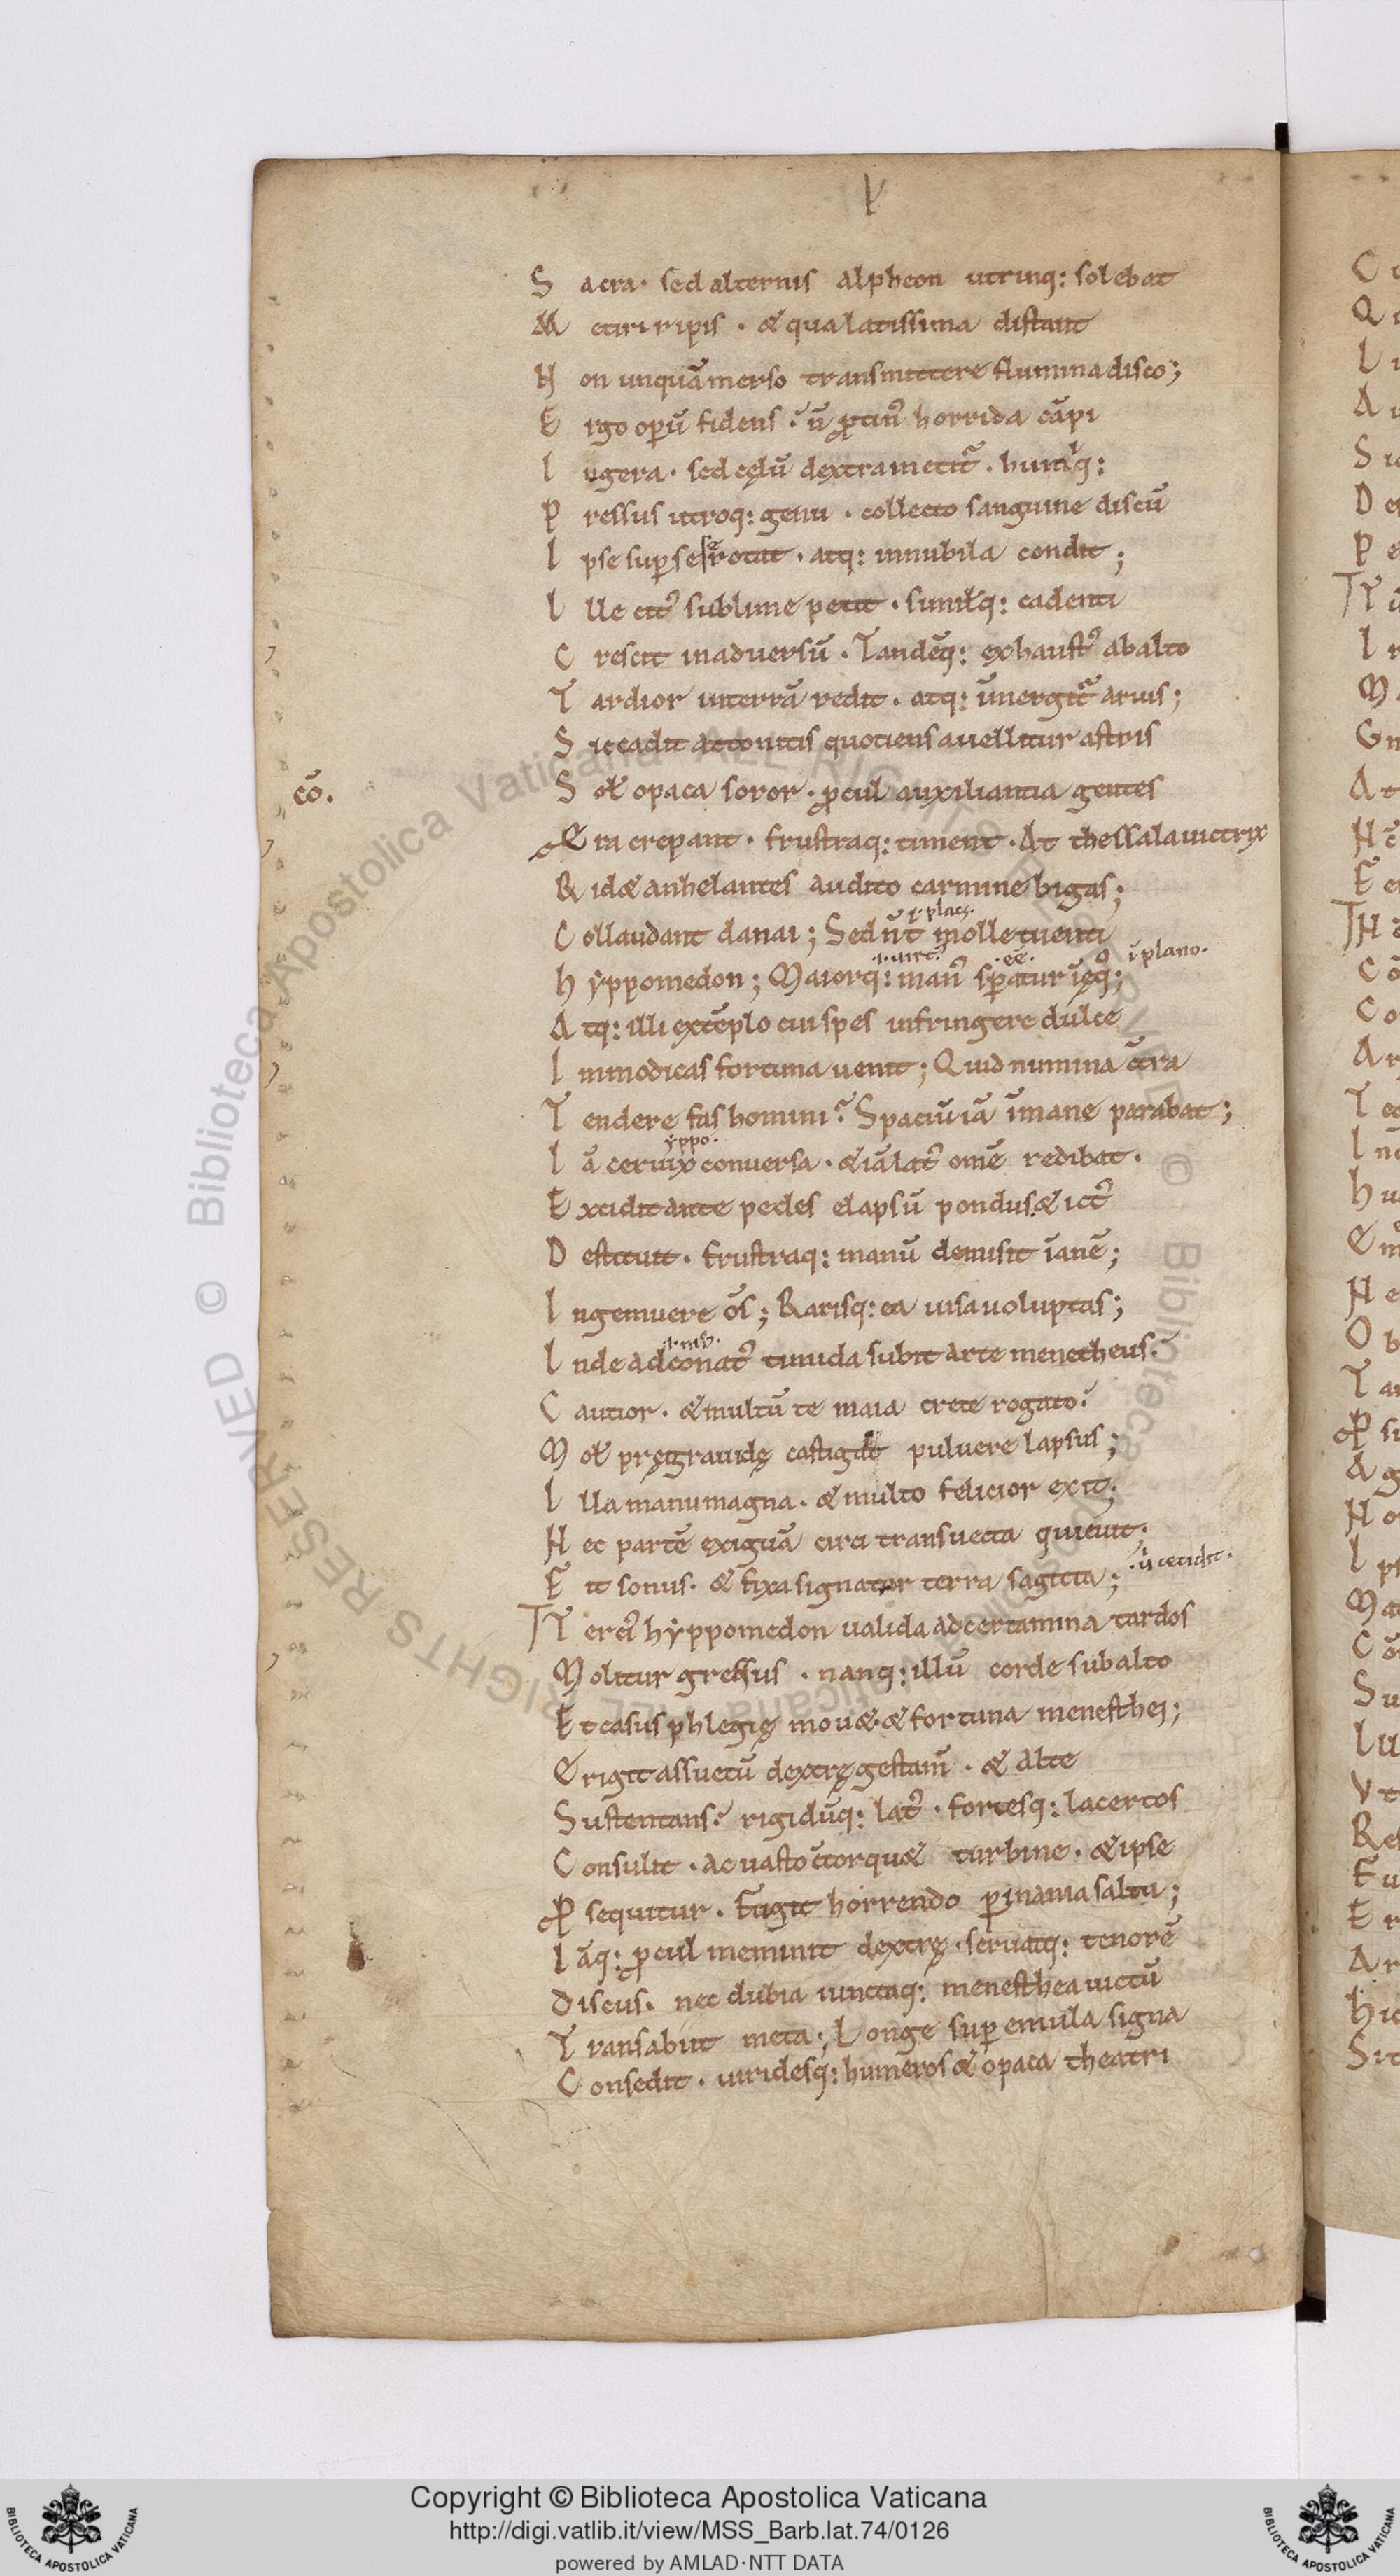 S acra · sed alternis alpheon utrinq: solebat
M etiri ripis · & qua latissima distant
N on unquā merso transmittere flumina disco;
E rgo operū fidens · n̄ protin᷒ horrida cāpi
I ugera · sed cęlū dextra metit᷑ · humiq:
P ressus utroq: genu · collecto sanguine discū
I pse super se rotat · atq: innubila condit;
I lle cit᷒ sublime petit · similisq: cadenti
C rescit inadversū · Tandēq: exhaust᷒ abalto
T ardior interrā redit · atq: īmergit᷑ arvis;
S ic cadit attonitis quotiens avellitur astris
cō.
S ol opaca soror · procul auxiliantia gentes
Æ ra crepant · frustraq: timent · At thessala victrix
R id& anhelantes audito carmine bigas;
C ollaudant danai; Sed n̄ t̄ molle tuenti
h yppomedon; Maiorq: man᷒ speratur ī ęq᷒; ī plano.
A tq: illi extēplo cui spes infringere dulce
I mmodicas fortuna venit; Quid numina ctra
T endere fas homini? Spaciū iā īmane parabat;
yppo.
I ā cervix conversa · & iā lat᷒ omē redibat.
E xcidit ante pedes elapsū pondus & ict᷒
D estituit · frustraq: manū demisit īanē;
I ngemuere ōs; Rarisq: ea visa voluptas;
I nde ad conat᷒ timida subit arte menetheus.
C autior · & multū te maia crete rogato.
M ol pręgrandę castigat pulvere lapsus;
I lla manu magna · & multo felicior exit;
N ec partē exiguā circi transvecta quievit;
F it sonus · & fixa signatur terra sagitta; · ū cecidit ·
T erci᷒ hyppomedon valida ad certamina tardos
M olitur gressus · nanq: illū corde sub alto
E t casus phlegię mov& · & fortuna menesthei;
E rigit assuetū dextrę gestam̄ · & alte
S ustentans · rigidūq: lat᷒ · fortesq: lacertos
C onsulit · ac vasto ctorqu& turbine · & ipse
P sequitur · Fugit horrendo p inania saltu;
I āq: procul meminit dextrę · servatq: tenorē
D iscus · nec dubia iunctaq: menesthea victū
T ransabiit meta; Longe sup emula signa
C onsedit · viridesq: humeros & opaca theatri
Copyright © Biblioteca Apostolica Vaticana
http://digi.vatlib.it/view/MSS_Barb.lat.74/0126
powered by AMLAD·NTT DATA